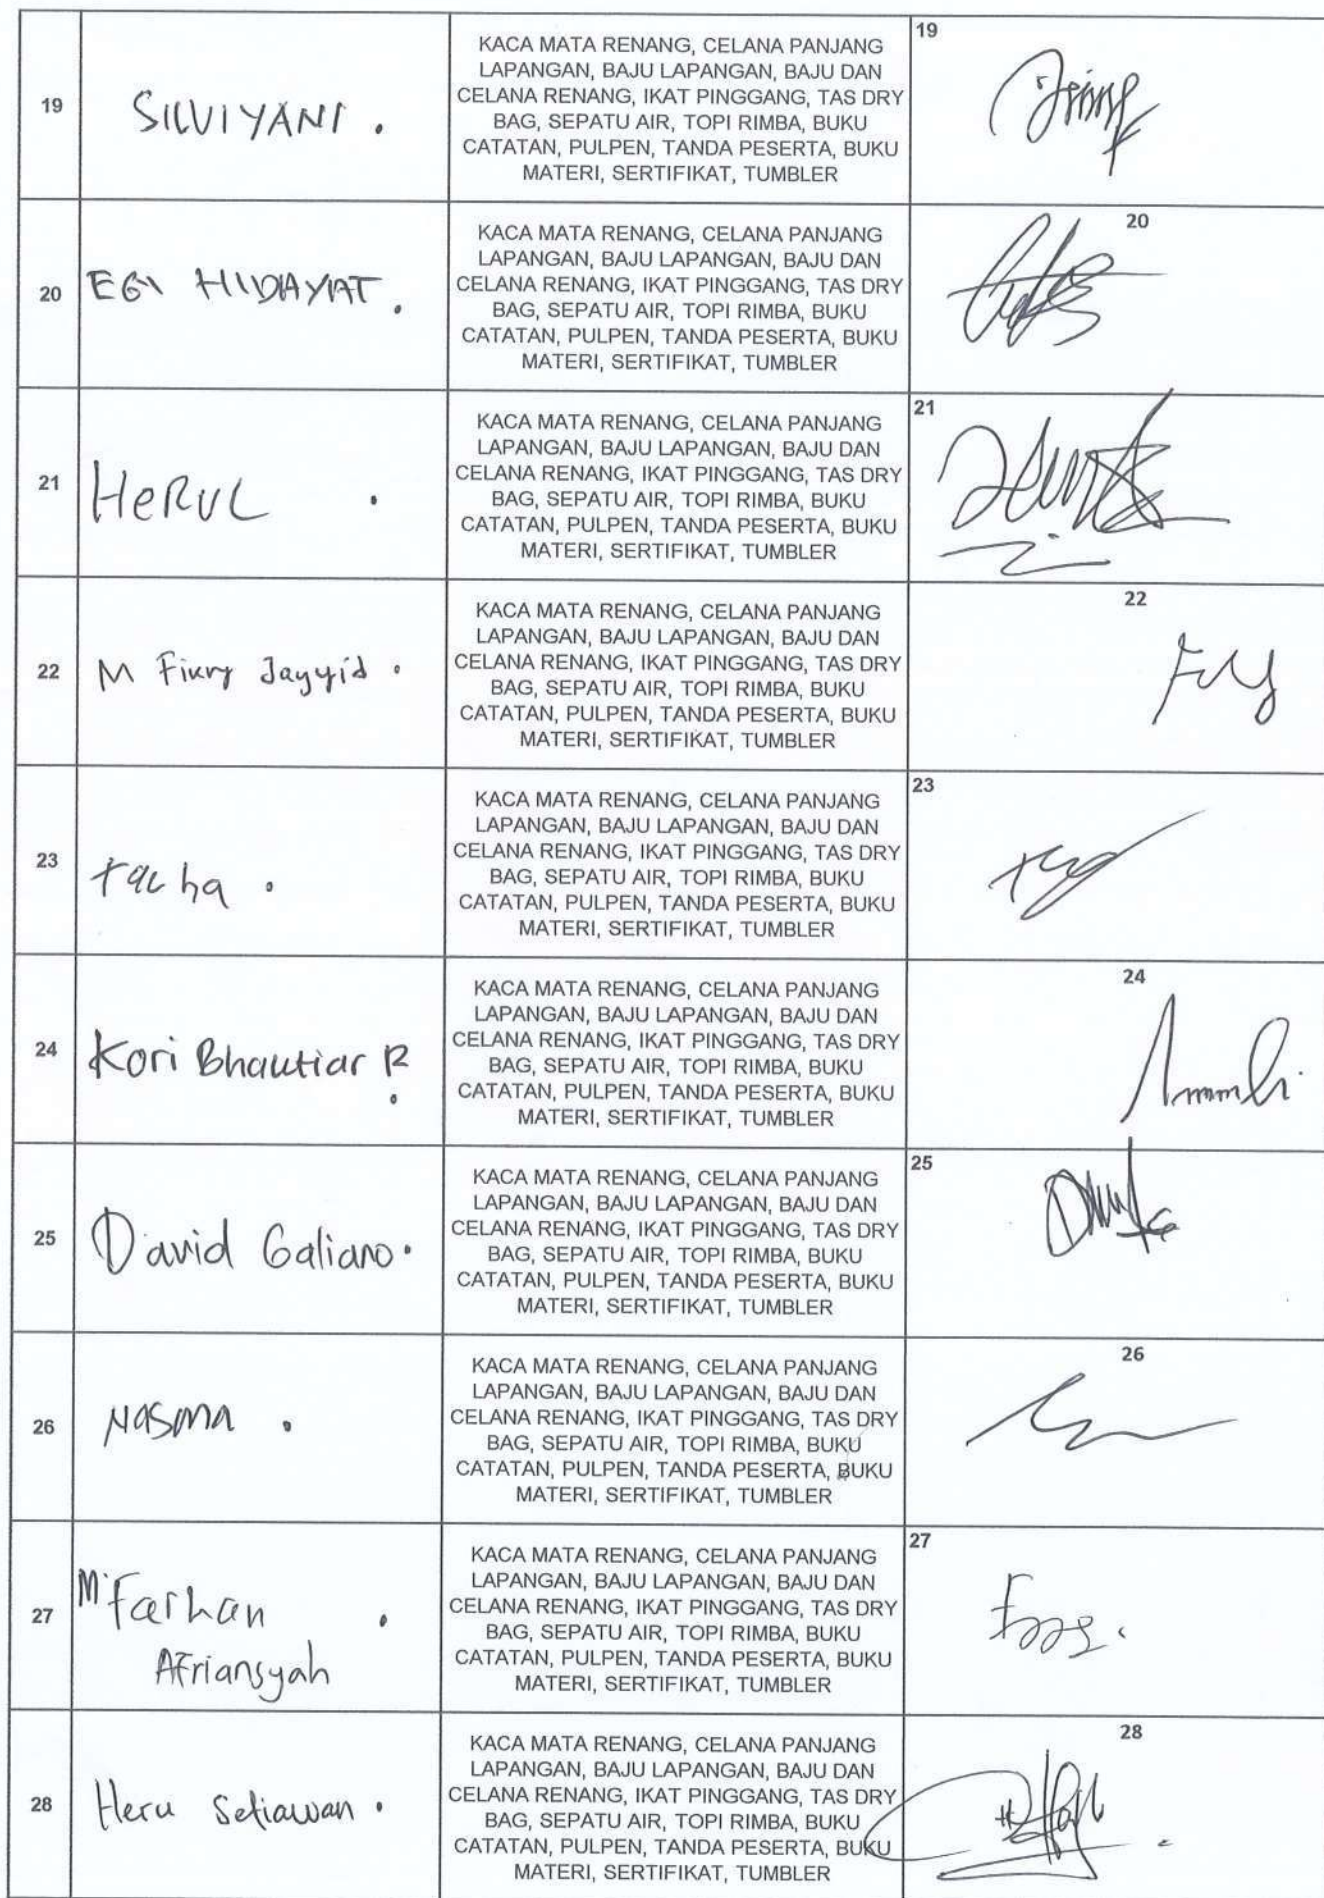 19
SILVIYANI .
KACA MATA RENANG, CELANA PANJANG
LAPANGAN, BAJU LAPANGAN, BAJU DAN
CELANA RENANG, IKAT PINGGANG, TAS DRY
BAG, SEPATU AIR, TOPI RIMBA, BUKU
CATATAN, PULPEN, TANDA PESERTA, BUKU
MATERI, SERTIFIKAT, TUMBLER
19
20
EGI HIDAYAT .
KACA MATA RENANG, CELANA PANJANG
LAPANGAN, BAJU LAPANGAN, BAJU DAN
CELANA RENANG, IKAT PINGGANG, TAS DRY
BAG, SEPATU AIR, TOPI RIMBA, BUKU
CATATAN, PULPEN, TANDA PESERTA, BUKU
MATERI, SERTIFIKAT, TUMBLER
20
21
HeRUL .
KACA MATA RENANG, CELANA PANJANG
LAPANGAN, BAJU LAPANGAN, BAJU DAN
CELANA RENANG, IKAT PINGGANG, TAS DRY
BAG, SEPATU AIR, TOPI RIMBA, BUKU
CATATAN, PULPEN, TANDA PESERTA, BUKU
MATERI, SERTIFIKAT, TUMBLER
21
22
M Fikry Jayyid .
KACA MATA RENANG, CELANA PANJANG
LAPANGAN, BAJU LAPANGAN, BAJU DAN
CELANA RENANG, IKAT PINGGANG, TAS DRY
BAG, SEPATU AIR, TOPI RIMBA, BUKU
CATATAN, PULPEN, TANDA PESERTA, BUKU
MATERI, SERTIFIKAT, TUMBLER
22
23
KACA MATA RENANG, CELANA PANJANG
LAPANGAN, BAJU LAPANGAN, BAJU DAN
CELANA RENANG, IKAT PINGGANG, TAS DRY
BAG, SEPATU AIR, TOPI RIMBA, BUKU
CATATAN, PULPEN, TANDA PESERTA, BUKU
MATERI, SERTIFIKAT, TUMBLER
23
24
Kori Bhautiar R .
KACA MATA RENANG, CELANA PANJANG
LAPANGAN, BAJU LAPANGAN, BAJU DAN
CELANA RENANG, IKAT PINGGANG, TAS DRY
BAG, SEPATU AIR, TOPI RIMBA, BUKU
CATATAN, PULPEN, TANDA PESERTA, BUKU
MATERI, SERTIFIKAT, TUMBLER
24
25
David Galiano .
KACA MATA RENANG, CELANA PANJANG
LAPANGAN, BAJU LAPANGAN, BAJU DAN
CELANA RENANG, IKAT PINGGANG, TAS DRY
BAG, SEPATU AIR, TOPI RIMBA, BUKU
CATATAN, PULPEN, TANDA PESERTA, BUKU
MATERI, SERTIFIKAT, TUMBLER
25
26
NASMA .
KACA MATA RENANG, CELANA PANJANG
LAPANGAN, BAJU LAPANGAN, BAJU DAN
CELANA RENANG, IKAT PINGGANG, TAS DRY
BAG, SEPATU AIR, TOPI RIMBA, BUKU
CATATAN, PULPEN, TANDA PESERTA, BUKU
MATERI, SERTIFIKAT, TUMBLER
26
27
M. Farhan .
Afriansyah
KACA MATA RENANG, CELANA PANJANG
LAPANGAN, BAJU LAPANGAN, BAJU DAN
CELANA RENANG, IKAT PINGGANG, TAS DRY
BAG, SEPATU AIR, TOPI RIMBA, BUKU
CATATAN, PULPEN, TANDA PESERTA, BUKU
MATERI, SERTIFIKAT, TUMBLER
27
28
Heru Setiawan .
KACA MATA RENANG, CELANA PANJANG
LAPANGAN, BAJU LAPANGAN, BAJU DAN
CELANA RENANG, IKAT PINGGANG, TAS DRY
BAG, SEPATU AIR, TOPI RIMBA, BUKU
CATATAN, PULPEN, TANDA PESERTA, BUKU
MATERI, SERTIFIKAT, TUMBLER
28